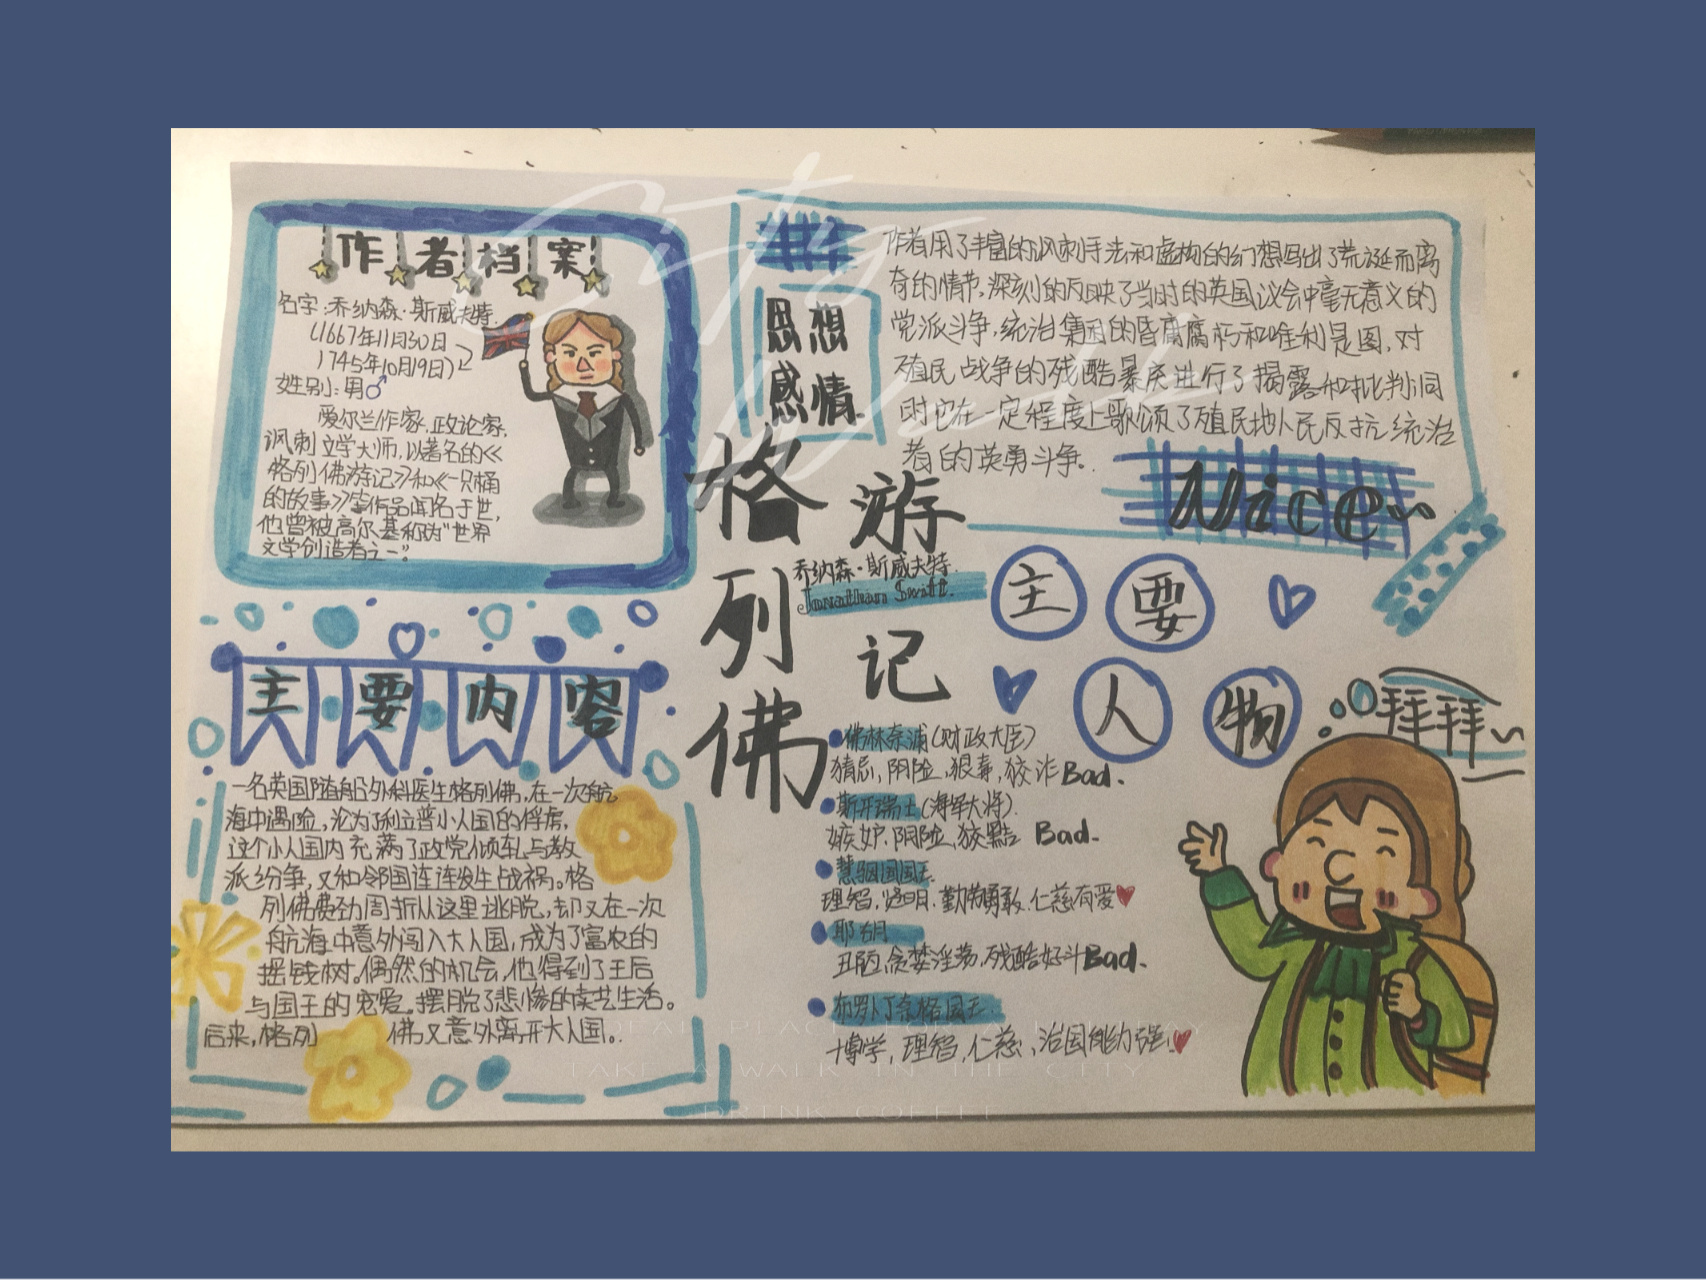 作者档案!
名字:乔纳森·斯威夫特.
(1667年11月30日
1745年10月19日)
姓别:男♂
爱尔兰作家.政论家.
讽刺文学大师,以著名的《
格列佛游记》和《一只桶
的故事》等作品闻名于世,
他曾被高尔基称为"世界
文学创造者之一"。
思想
感情
作者用了丰富的讽刺手法和虚构的幻想写出了荒诞而离
奇的情节,深刻的反映了当时的英国议会中毫无意义的
党派斗争,统治集团的昏庸腐朽和唯利是图,对
殖民战争的残酷暴戾进行了揭露和批判;同
时它在一定程度上歌颂了殖民地人民反抗统治
者的英勇斗争。
Nice~
格列佛
游记
乔纳森·斯威夫特.
Jonathan Swift.
主要内容
一名英国随船外科医生格列佛,在一次航
海中遇险,沦为了利立普小人国的俘虏,
这个小人国内充满了政党倾轧与教
派纷争,又和邻国连连发生战祸。格
列佛费劲周折从这里逃脱,却又在一次
航海中意外闯入大人国,成为了富农的
摇钱树。偶然的机会,他得到了王后
与国王的宠爱。摆脱了悲惨的卖艺生活。
后来,格列 佛又意外离开大人国。
主要
人物
佛林奈浦(财政大臣)
猜忌,阴险,狠毒,狡诈Bad.
斯开瑞士(海军大将)
嫉妒.阴险,狡黠 Bad.
慧骃国国王
理智,透明.勤劳勇敢.仁慈有爱
耶胡
丑陋,贪婪淫荡,残酷好斗Bad.
布罗卜丁奈格国王
博学,理智,仁慈,治国能力强!
拜拜~
City
Walk
TAKE A WALK IN THE CITY
DRINK COFFEE